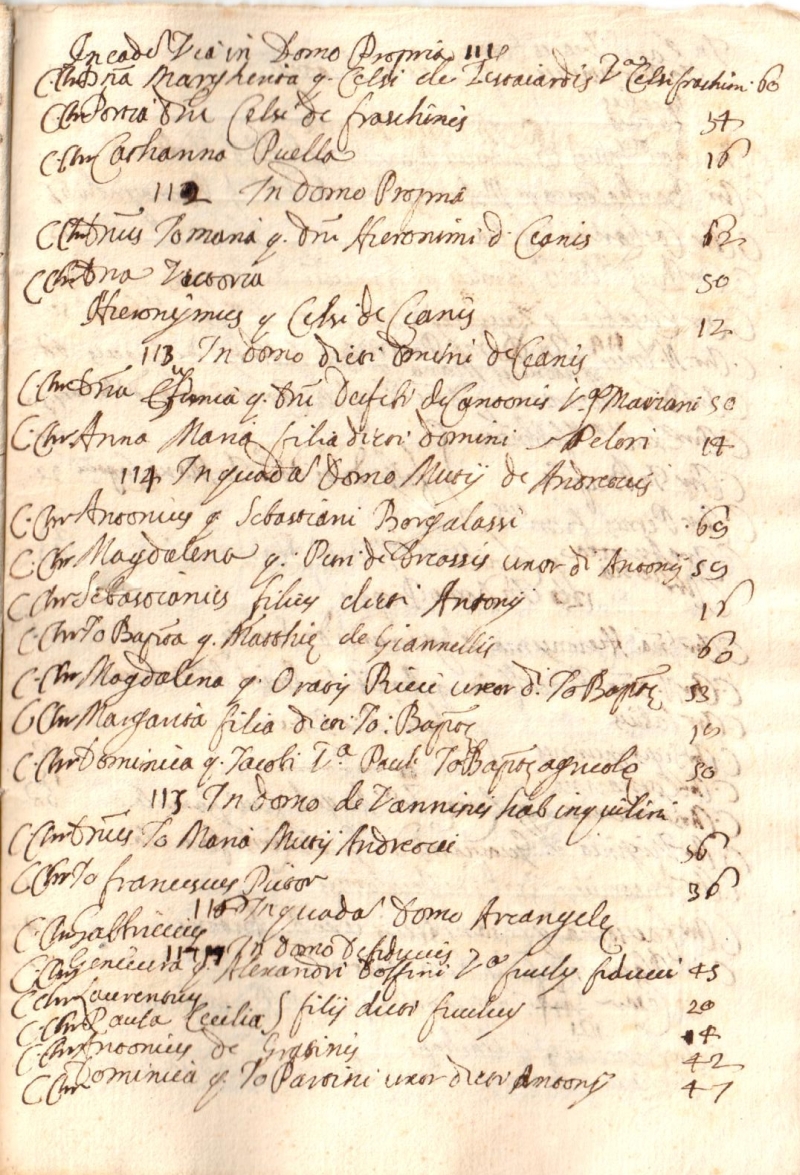 In ead. Via in Domo Propria 111
C. Chr. Dña Margherita q. Celsi de Vª Celsi fraschin. 60
C. Chr. Portia Dñi Celsi de fraschinis 54
C. Chr. Cathanna Puella 16
112 In Domo Propria
C. Chr. Dñus Jo maria q. Dñi Hieronimi d. Ceanis 62
C. Chr. Dna Victoria 50
Hieronymus q Celsi de Ceanis 12
113 In domo dicti domini de Ceanis
C. Chr. Dña q. Dñi Deifebi de Cantonis Vª q. Mariani 50
C. Chr. Anna Maria filia dicti domini 14
114 In quada Domo Mutij de Andreocis
C. Chr. Antonius q Sebastiani Borgalassi 69
C. Chr. Magdalena q. Petri de uxor di Antonij 59
C. Chr. Sebastianus filius dicti Antonij 16
C. Chr. Jo Baptta q. Matthię de Giannellis 60
C. Chr. Magdalena q. Oratij Ricci uxor di. Jo Baptę 53
C. Chr. Margarita filia dicti Jo: Baptę 19
C. Chr. Dominica q. Jacobi Vª Pauli Jo Baptę agricolę 50
115 In domo de Vanninis hab inquilini
C. Chr. Dñus Jo Maria Mutij Andreocci 56
C. Chr. Jo franciscus Pictor 36
116 In quada Domo Arcangelę
C. Chr. Fabritius
117 In domo de fiduciis
C. Chr. Genevera q. Alexandri Vª fiducci 45
C. Chr. Laurentius
C. Chr. Paula Cecilia } filij dicti 20
14
C. Chr. Antonius de Gratinis 42
C. Chr. Dominica q. Jo uxor dicti Antonij 47